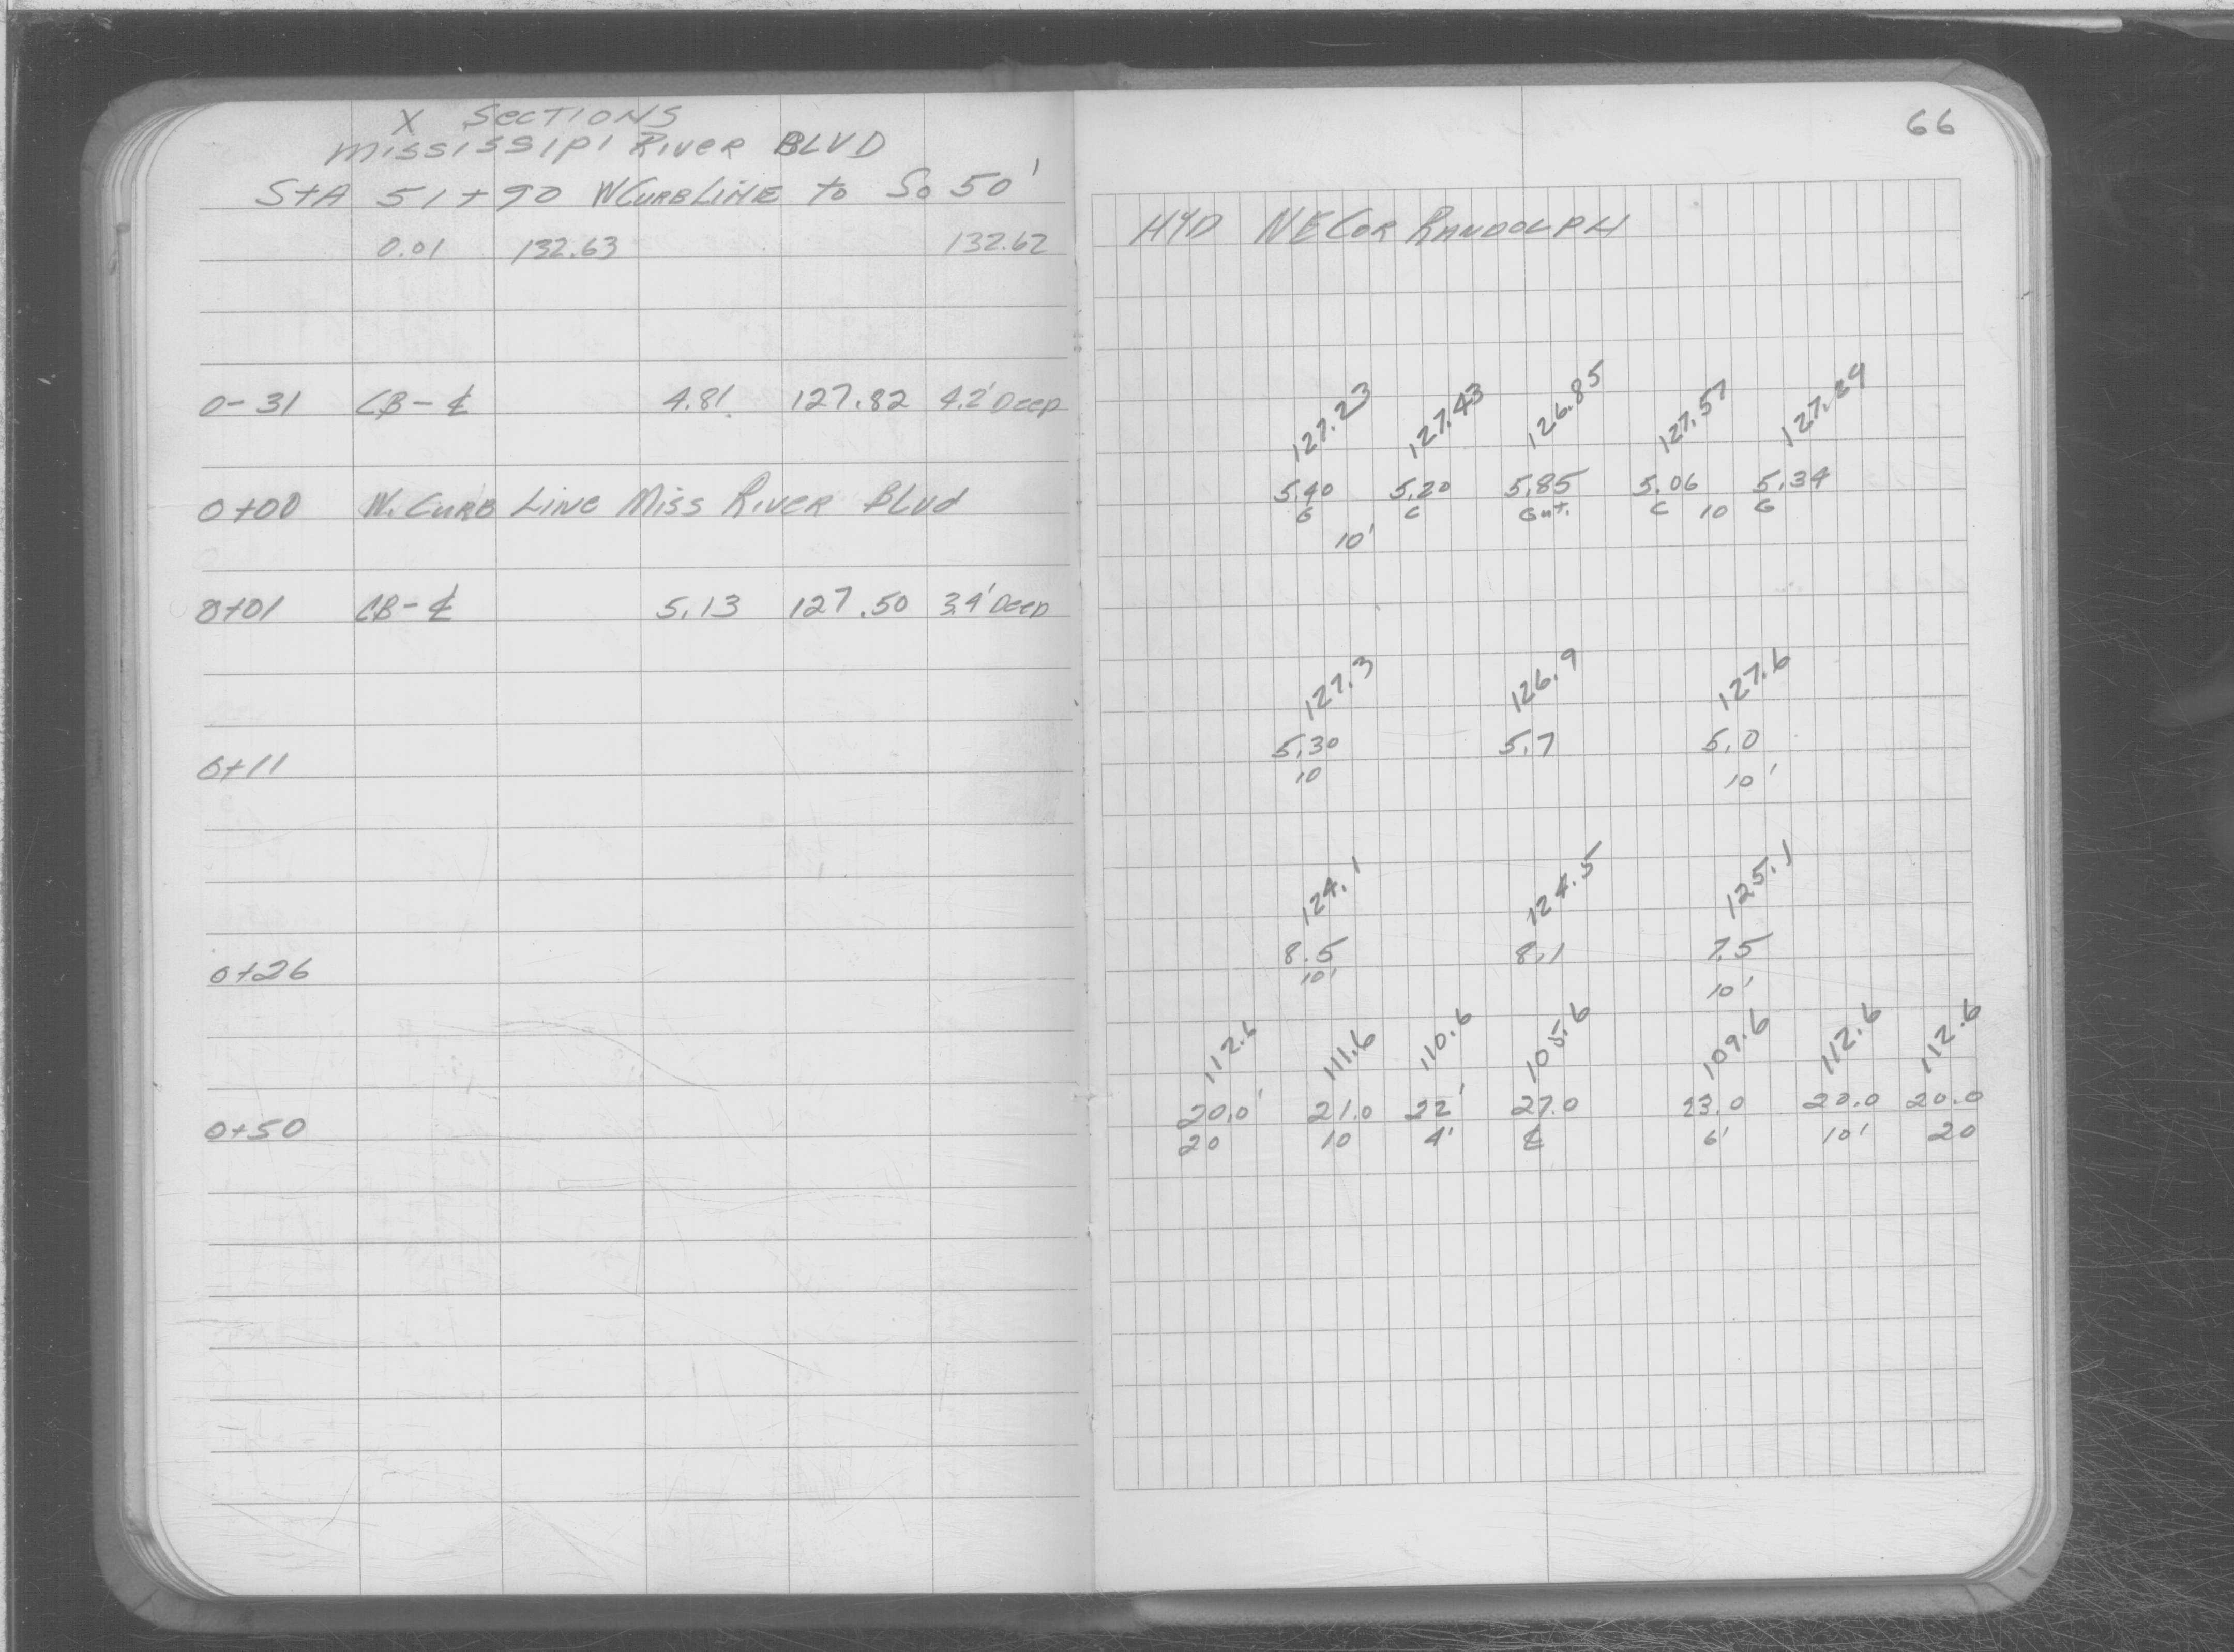 X SECTIONS
MISSISSIPI RIVER BLVD
STA 51+90 W CURB LINE to So 50'
0.01 132.63 132.62
0-31 CB-℄ 4.81 127.82 4.2' Deep
0+00 W. CURB LINE MISS RIVER BLVD
0+01 CB-℄ 5.13 127.50 3.4' Deep
0+11
0+26
0+50
66
HYD NE COR RANDOLPH
127.23 127.43 126.85 127.57 127.29
5.40 5.20 5.85 5.06 5.34
G C Gut. C 10 G
10'
127.3 126.9 127.6
5.30 5.7 5.0
10 10'
124.1 124.5 125.1
8.5 8.1 7.5
10' 10'
112.6 111.6 110.6 105.6 109.6 112.6 112.6
20.0' 21.0 22' 27.0 23.0 20.0 20.0
20 10 4' ℄ 6' 10' 20